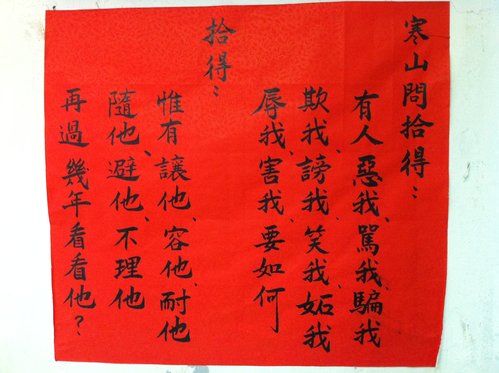 寒山問拾得：
有人惡我、罵我、騙我
欺我、謗我、笑我、妬我
辱我、害我、要如何
拾得：
惟有讓他、容他、耐他
隨他、避他、不理他
再過幾年看看他？